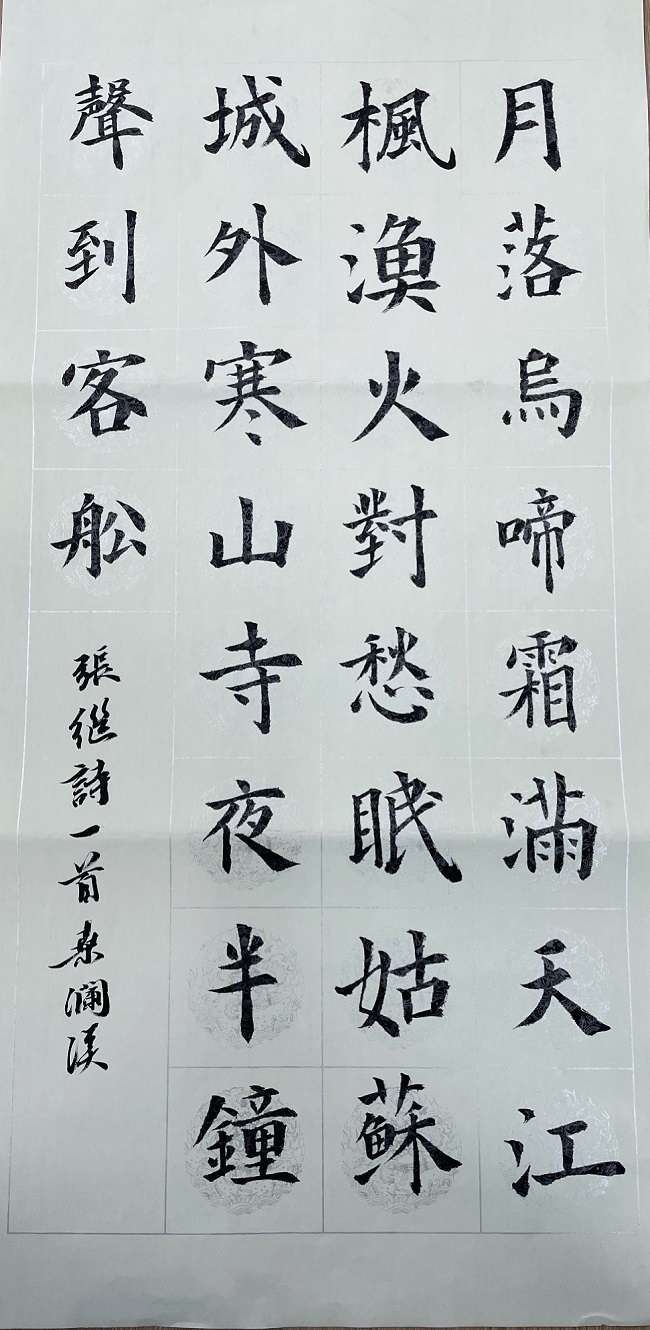 月落烏啼霜滿天江
楓漁火對愁眠姑蘇
城外寒山寺夜半鐘
聲到客舩
張継詩一首 瀾